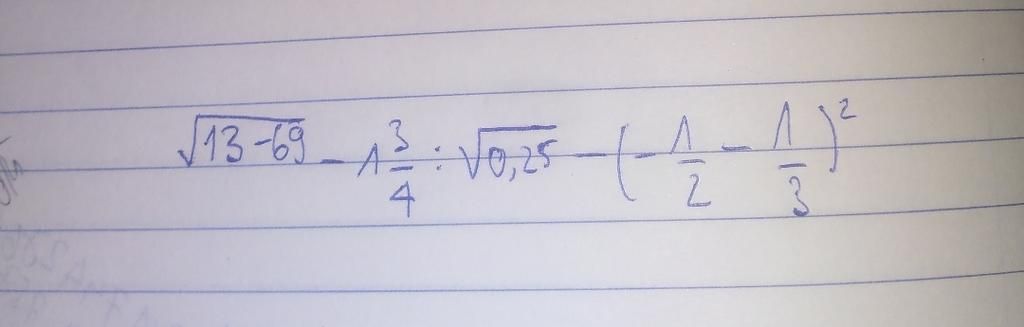 √13-69 - 1 3/4 : √0,25 - (- 1/2 - 1/3)²